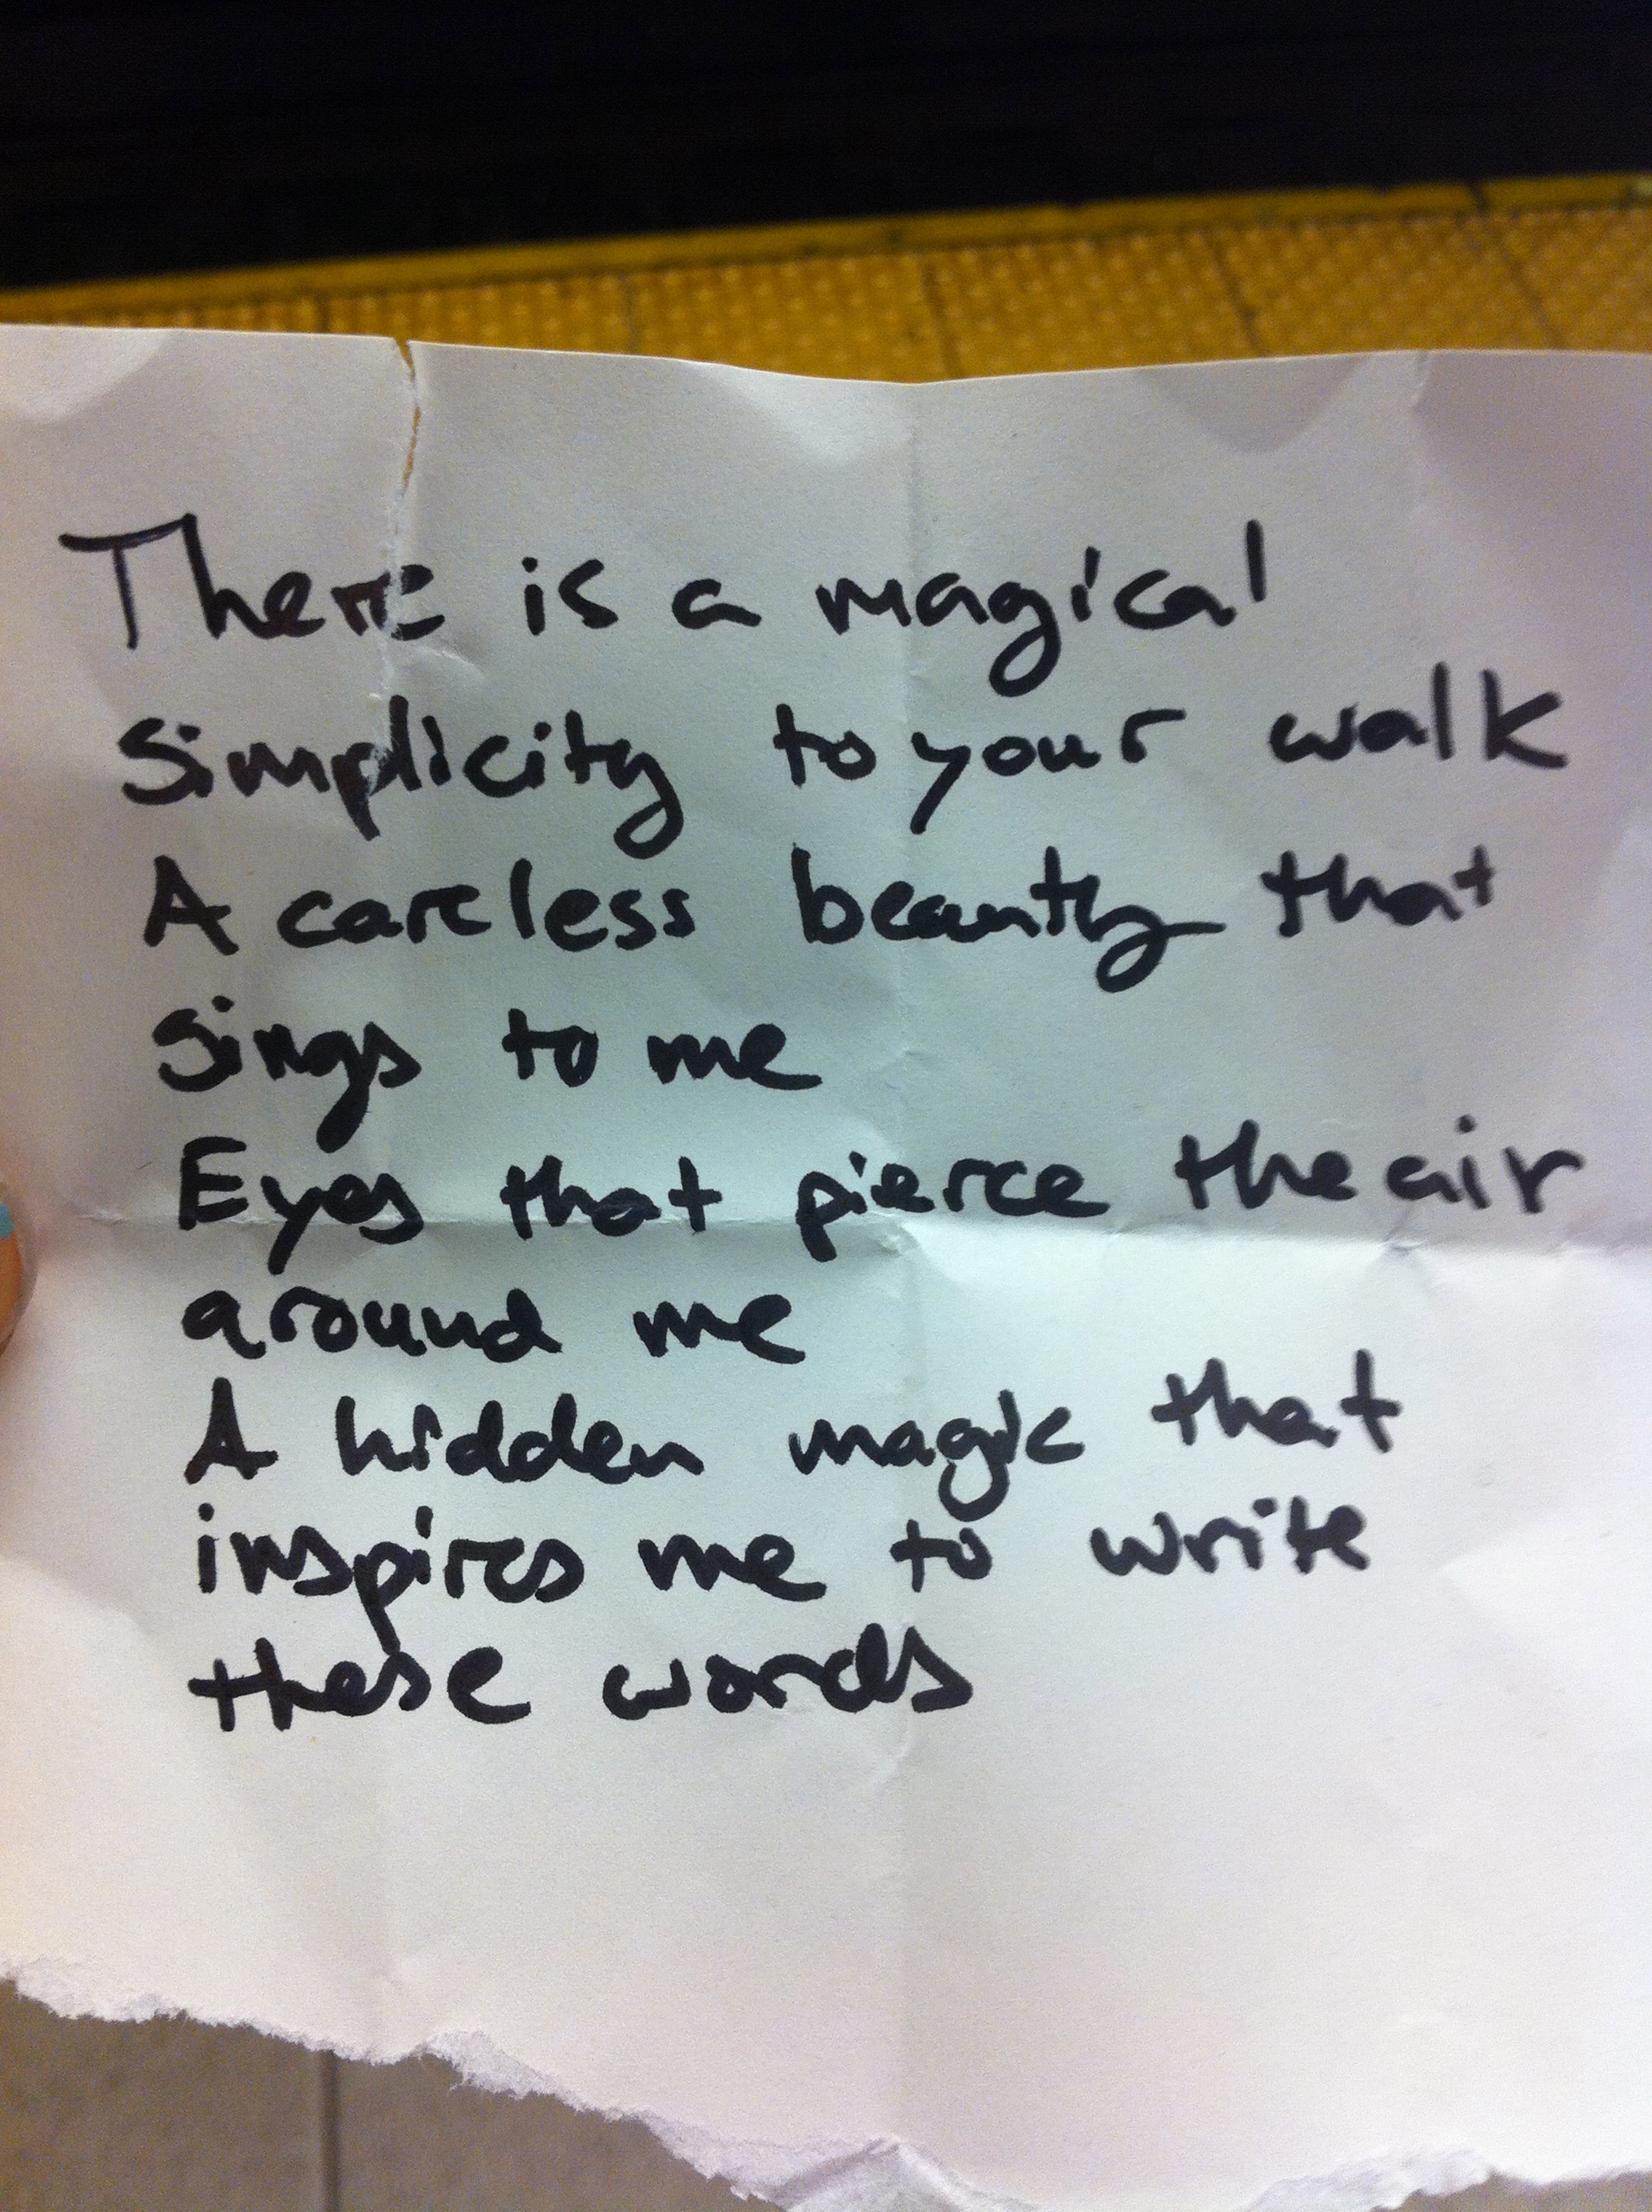 There is a magical
Simplicity to your walk
A careless beauty that
Sings to me
Eyes that pierce the air
around me
A hidden magic that
inspires me to write
these words